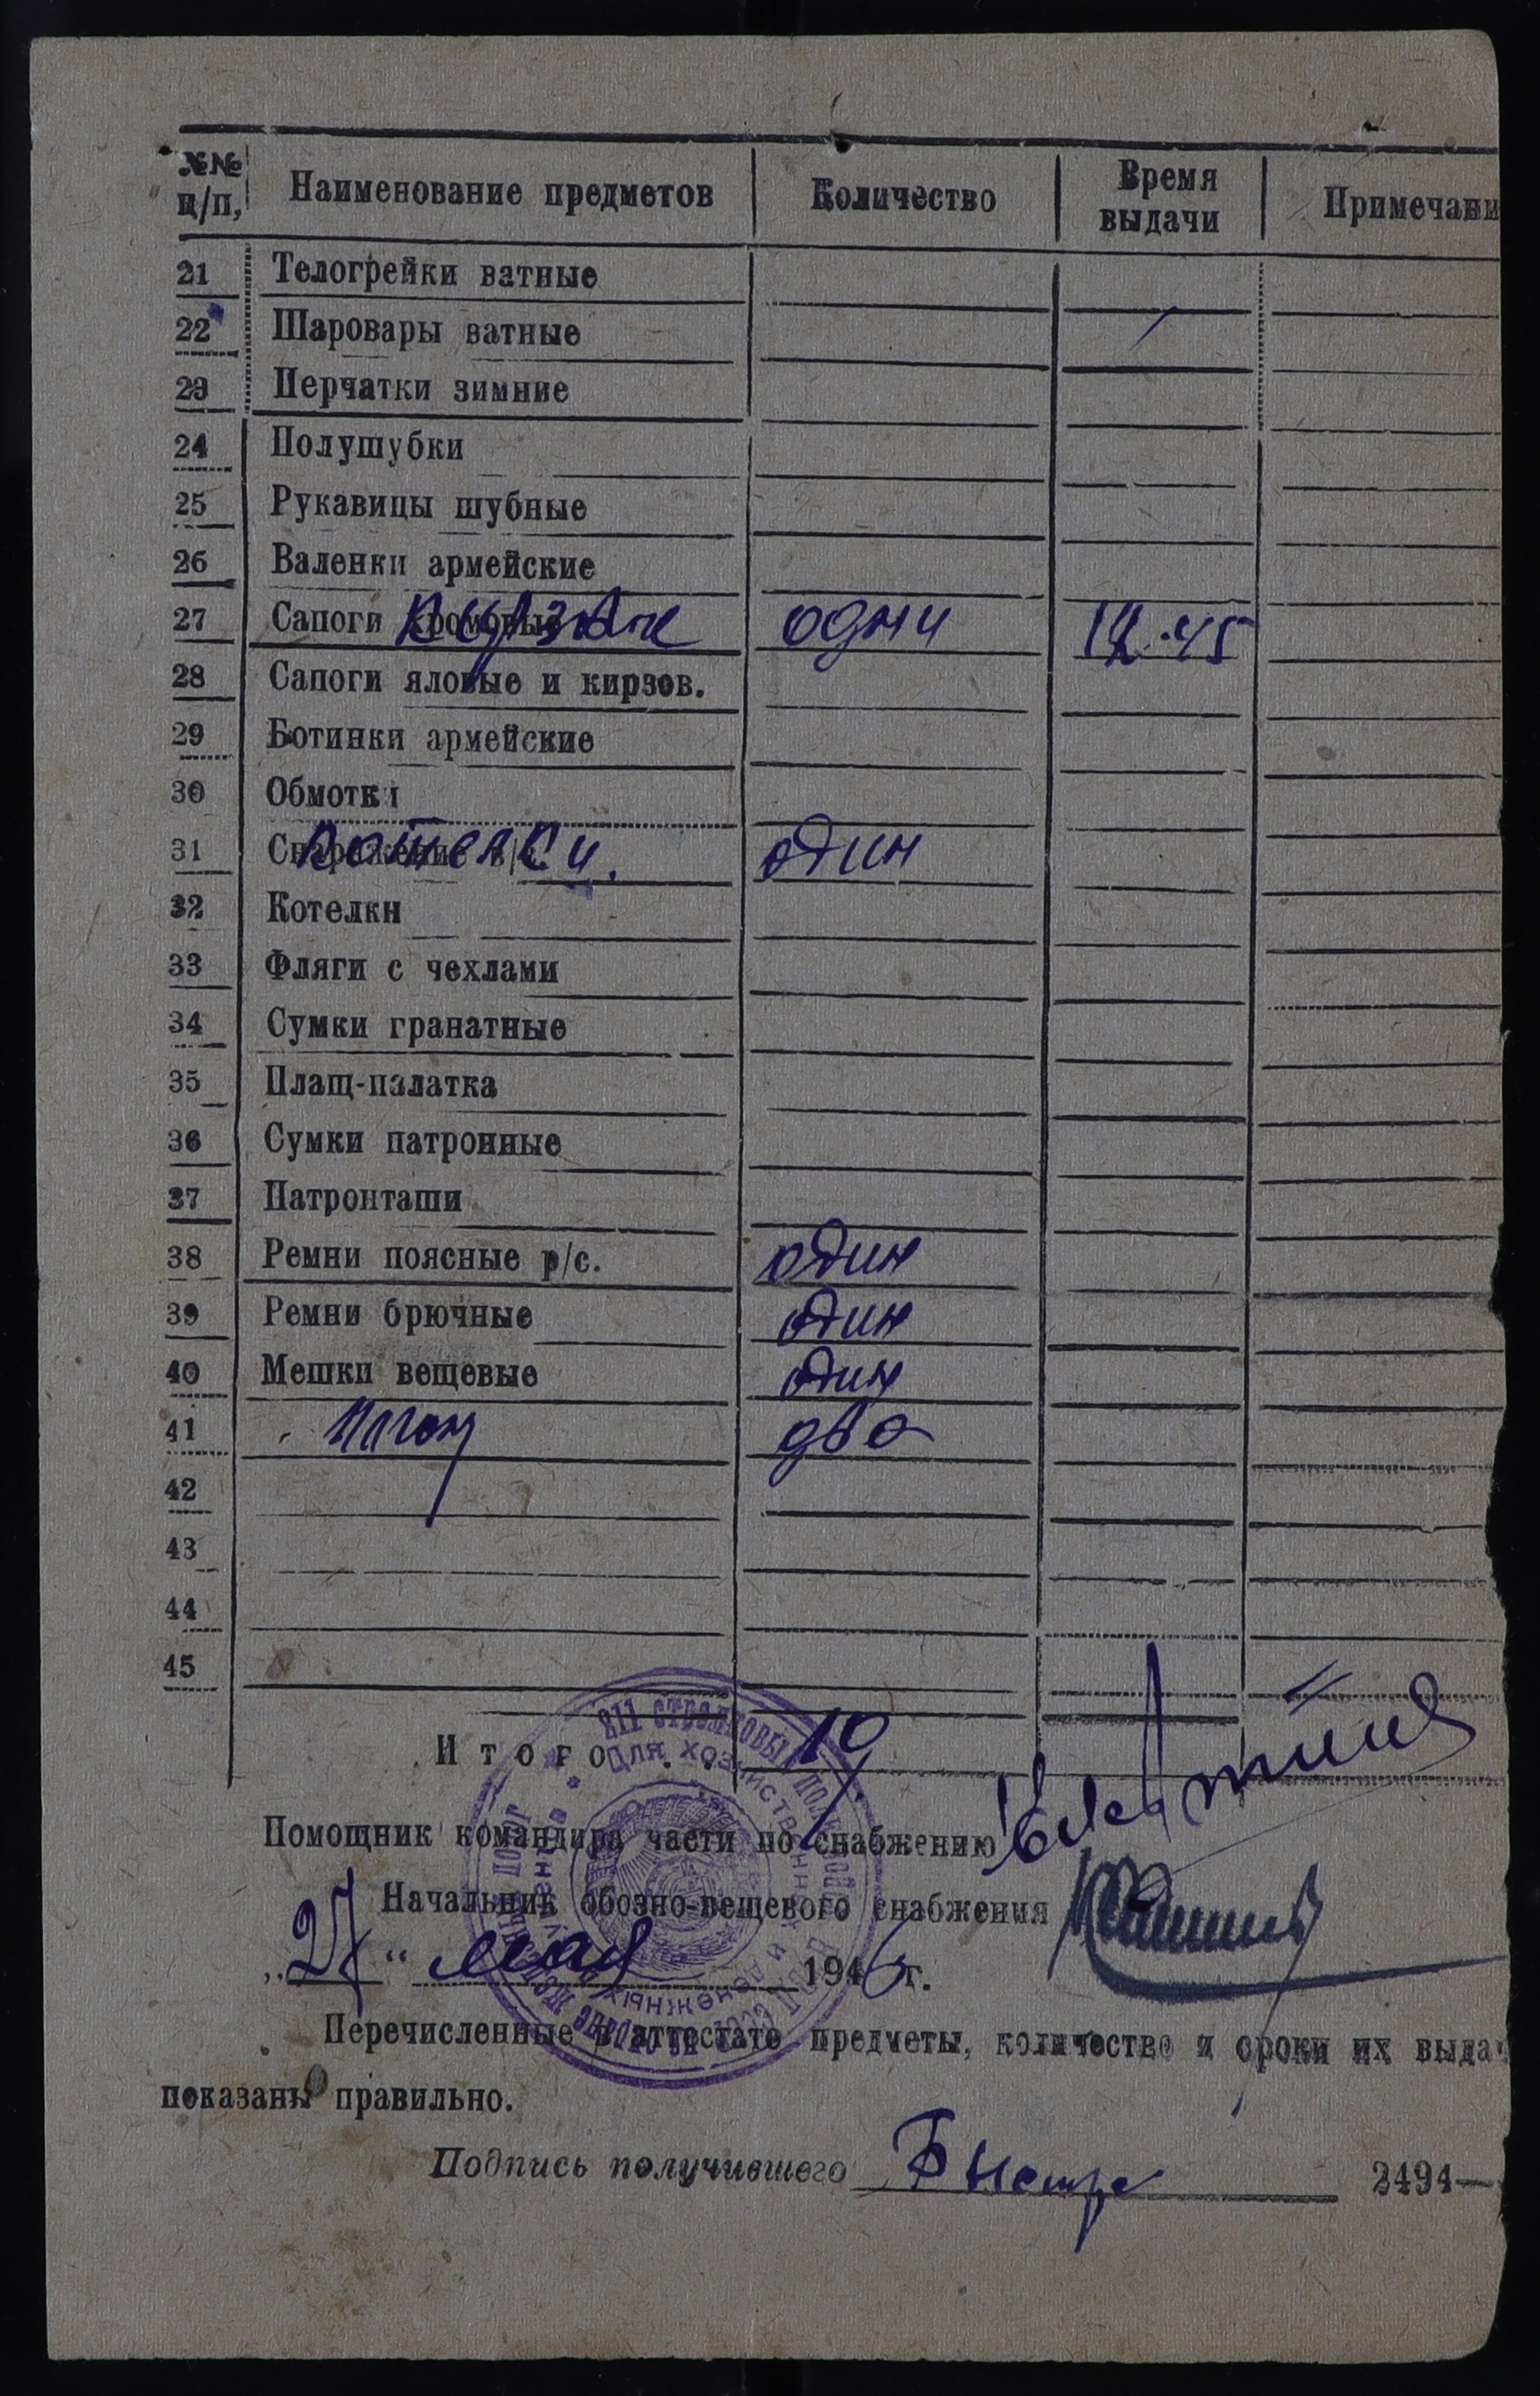 №№ п/п, Наименование предметов Количество Время выдачи Примечани
21 Телогрейки ватные
22 Шаровары ватные
23 Перчатки зимние
24 Полушубки
25 Рукавицы шубные
26 Валенки армейские
27 Сапоги хромовые одни 12.45
28 Сапоги яловые и кирзов.
29 Ботинки армейские
30 Обмотки
31 Снаряжение Котелки. один
32 Котелки
33 Фляги с чехлами
34 Сумки гранатные
35 Плащ-палатка
36 Сумки патронные
37 Патронташи
38 Ремни поясные р/с. один
39 Ремни брючные один
40 Мешки вещевые один
41 два
42
43
44
45
Итого . . . 19
Помощник командира части по снабжению
Начальник обозно-вещевого снабжения
„27“ мая 1946 г.
Перечисленные в аттестате предметы, количество и сроки их выдач
показаны правильно.
Подпись получившего 2494—
811 стрелковый полк
для хозяйственных и денежных